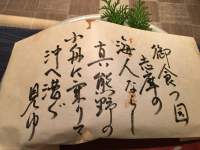 御食つ国
志摩の
海人ならし
真熊野の
小舟に乗りて
沖へ漕ぐ
見ゆ